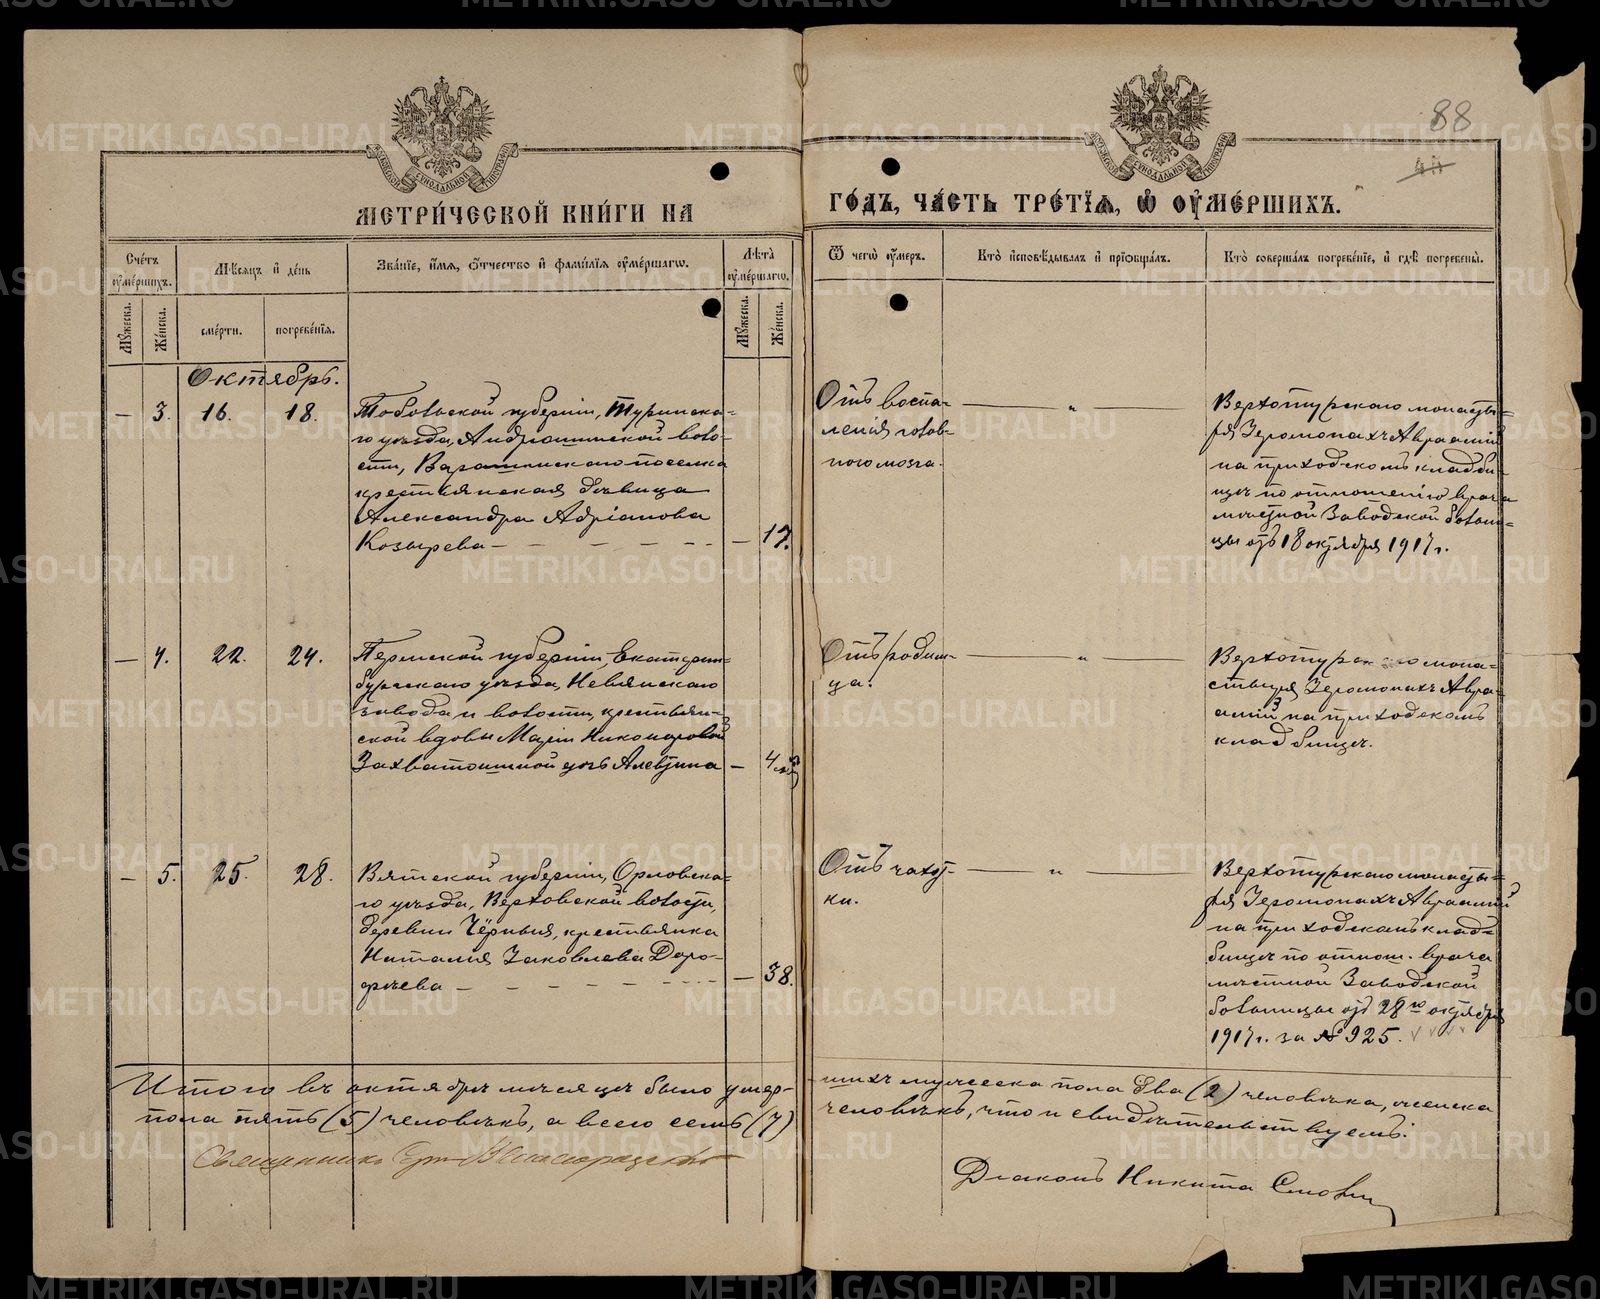 88
МЕТРИ́ЧЕСКОЙ КНИ́ГИ НА ГО́ДЪ, ЧА́СТЬ ТРЕ́ТЇѦ, Ѡ҆ ОУ҆МЕ́РШИХЪ.
Сче́тъ оу҆ме́ршихъ.
Мѣ́сяцъ и҆ де́нь
Зва́нїе, и҆́мѧ, ѻ҆́тчество и҆ фамѝлїѧ оу҆ме́ршагѡ.
Лѣ́та оу҆ме́ршагѡ.
Ѿ чегѡ̀ оу҆́меръ.
Кто̀ и҆сповѣ́дывалъ и҆ прїѡбща́лъ.
Кто̀ соверша́лъ погребе́нїе, и҆ гдѣ̀ погребены̀.
Мꙋ́жеска.
Же́нска.
сме́рти.
погребе́нїѧ.
Мꙋ́жеска.
Же́нска.
Октябрь.
— 3. 16. 18.
Тобольской губерніи, Туринска-
го уѣзда, Андрюшинской воло-
сти, поселка
крестьянская дѣвица
Александра Адріанова
Козырева — — — — — — 17.
Отъ воспа-
ленія голов-
ного мозга.
— „ —
Верхотурскаго монасты-
ря Іеромонахъ Авраамій
на приходскомъ кладби-
щѣ по отношенію врача
мѣстной Заводской больни-
цы отъ 18 октября 1917 г.
— 4. 22. 24.
Пермской губерніи, Екатерин-
бургскаго уѣзда, Невьянскаго
завода и волости, крестьян-
ской вдовы Маріи Никоноровой
Захватошиной дчь Алевтина — 4 м.
Отъ родим-
ца.
— „ —
Верхотурскаго мона-
стыря Іеромонахъ Авра-
амій на приходскомъ
кладбищѣ.
— 5. 25. 28.
Вятской губерніи, Орловска-
го уѣзда, Верховской волости,
деревни Чёрныя, крестьянка
Наталія Яковлева Доро-
фѣева — — — — — — 38.
Отъ чахот-
ки.
— „ —
Верхотурскаго монасты-
ря Іеромонахъ Авраамій
на приходскомъ клад-
бищѣ по отнош. врача
мѣстной Заводской
больницы отъ 28го октября
1917 г. за № 925.
Итого въ октябрѣ мѣсяцѣ было умер-шихъ мужеска пола два (2) человѣка, женска
пола пять (5) человѣкъ, а всего семь (7) человѣкъ, что и свидѣтельствуемъ:
Священникъ
Діаконъ Никита
METRIKI.GASO-URAL.RU